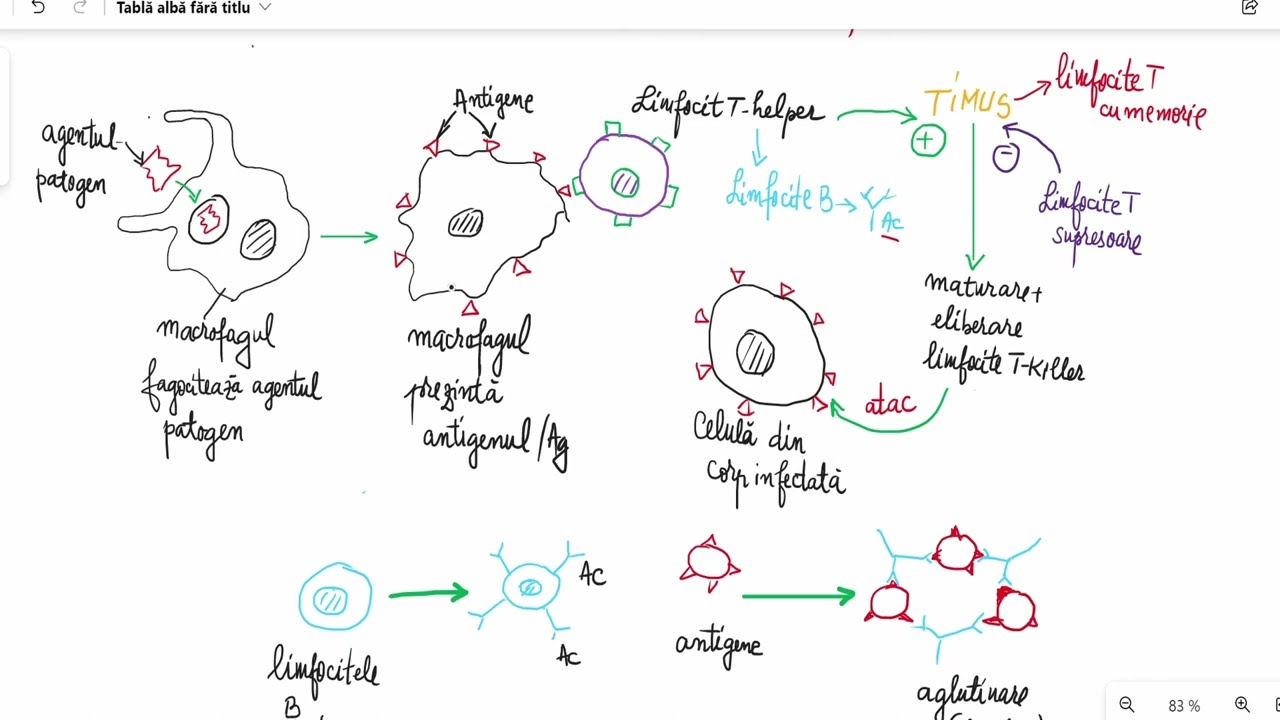 Tablă albă fără titlu
agentul
patogen
macrofagul
fagocitează agentul
patogen
Antigene
macrofagul
prezintă
antigenul /Ag
Limfocit T-helper
Limfocite B
Ac
TIMUS
limfocite T
cu memorie
+
-
Limfocite T
supresoare
maturare +
eliberare
limfocite T-Killer
atac
Celulă din
corp infectată
limfocitele
B
Ac
Ac
antigene
aglutinare
83 %